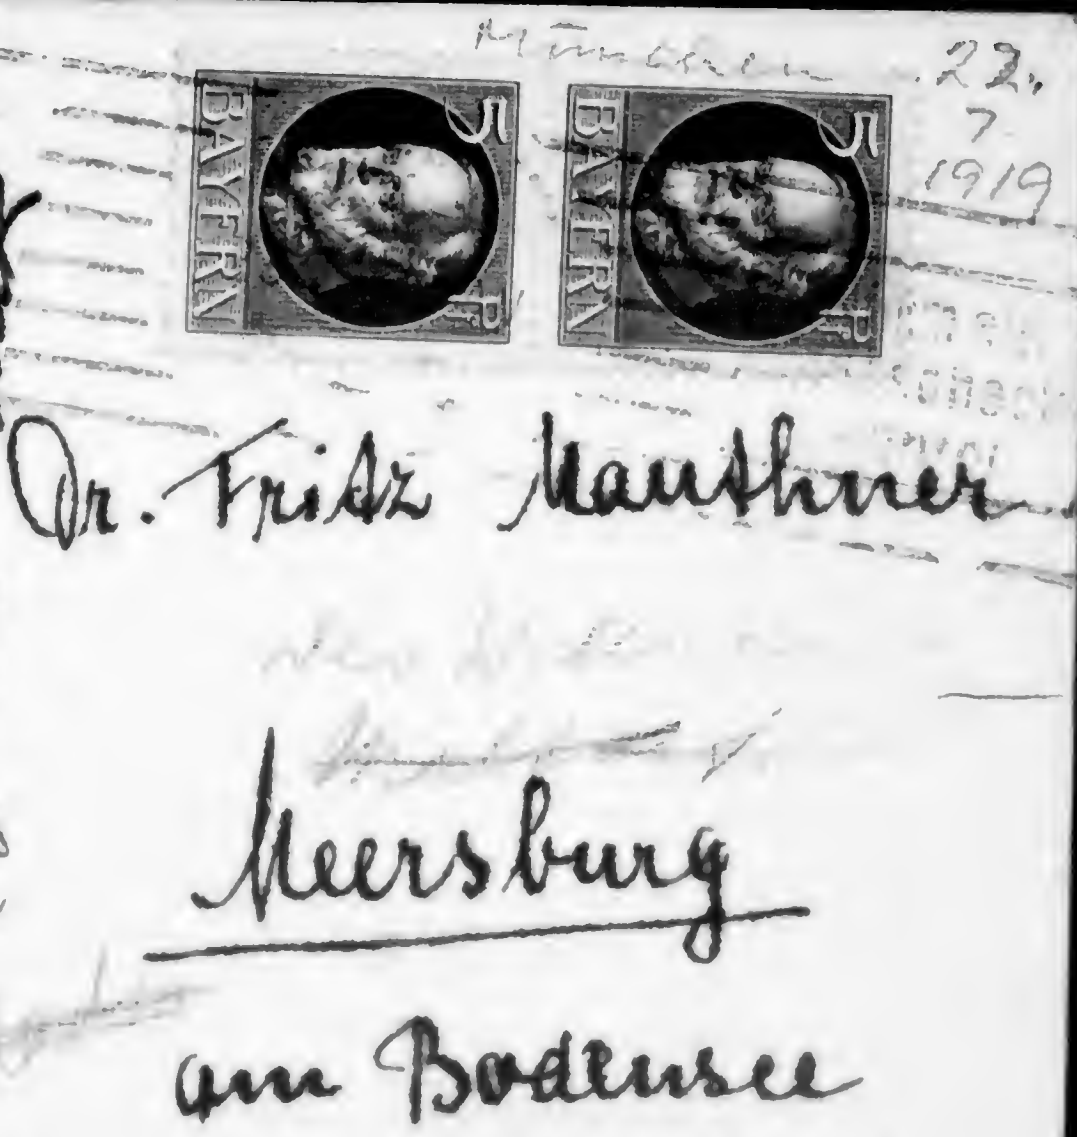 München
22.
7
1919
BAYERN 5 Pf
BAYERN 5 Pf
Dr. Fritz Mauthner
Meersburg
am Bodensee